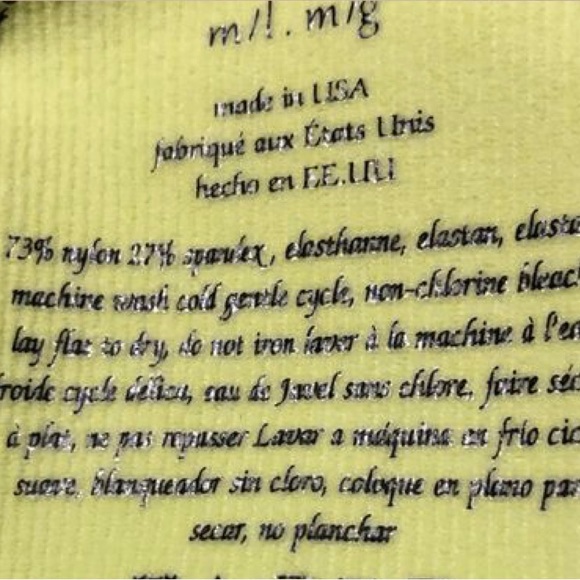 m/l . m/g
made in USA
fabriqué aux États Unis
hecho en EE.UU
73% nylon 27% spandex, elasthanne, elastan,
machine wash cold gentle cycle, non-chlorine bleach
lay flat to dry, do not iron laver à la machine à l'eau
froide cycle délicat, eau de Javel sans chlore, faire
à plat, ne pas repasser Lavar a máquina en frío
suave, blanqueador sin cloro, coloque en plano
secar, no planchar